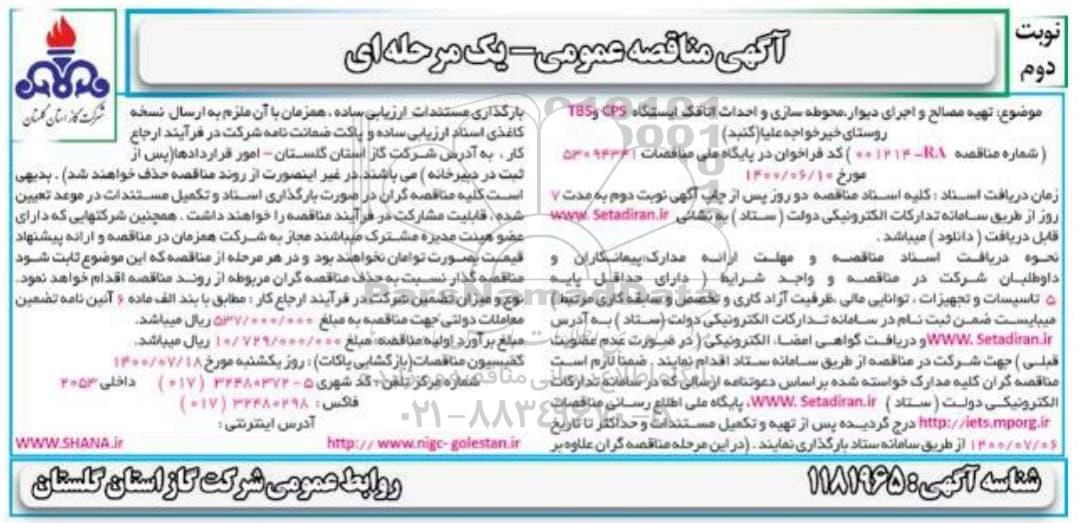 نوبت
دوم
آگهی مناقصه عمومی – یک مرحله ای
شرکت گاز استان گلستان
موضوع: تهیه مصالح و اجرای دیوار، محوطه سازی و احداث اتاقک ایستگاه CPS و TBS
روستای خیرخواجه علیا(گنبد)
( شماره مناقصه RA-001214 ) کد فراخوان در پایگاه ملی مناقصات 5309434۱
مورخ 1400/06/10
زمان دریافت اسناد : کلیه اسناد مناقصه دو روز پس از چاپ آگهی نوبت دوم به مدت 7
روز از طریق سامانه تدارکات الکترونیکی دولت ( ستاد ) به نشانی www. Setadiran.ir
قابل دریافت ( دانلود ) میباشد .
نحوه دریافت اسناد مناقصه و مهلت ارائه مدارک:پیمانکاران و
داوطلبان شرکت در مناقصه و واجد شرایط ( دارای حداقل پایه
5 تاسیسات و تجهیزات ، توانایی مالی ،ظرفیت آزاد کاری و تخصص و سابقه کاری مرتبط )
میبایست ضمن ثبت نام در سامانه تدارکات الکترونیکی دولت (ستاد ) به آدرس
WWW. Setadiran.ir و دریافت گواهی امضاء الکترونیکی ( در صورت عدم عضویت
قبلی ) جهت شرکت در مناقصه از طریق سامانه ستاد اقدام نمایند . ضمنا لازم است
مناقصه گران کلیه مدارک خواسته شده بر اساس دعوتنامه ارسالی که در سامانه تدارکات
الکترونیکی دولت ( ستاد ) WWW. Setadiran.ir، پایگاه ملی اطلاع رسانی مناقصات
http://iets.mporg.ir درج گردیده پس از تهیه و تکمیل مستندات و حداکثر تا تاریخ
1400/07/06 از طریق سامانه ستاد بارگذاری نمایند . (در این مرحله مناقصه گران علاوه بر
بارگذاری مستندات ارزیابی ساده ، همزمان با آن ملزم به ارسال نسخه
کاغذی اسناد ارزیابی ساده و پاکت ضمانت نامه شرکت در فرآیند ارجاع
کار ، به آدرس شرکت گاز استان گلستان – امور قراردادها(پس از
ثبت در دبیرخانه ) می باشند.در غیر اینصورت از روند مناقصه حذف خواهند شد) . بدیهی
است کلیه مناقصه گران در صورت بارگذاری اسناد و تکمیل مستندات در موعد تعیین
شده ، قابلیت مشارکت در فرآیند مناقصه را خواهند داشت . همچنین شرکتهایی که دارای
عضو هیئت مدیره مشترک میباشند مجاز به شرکت همزمان در مناقصه و ارائه پیشنهاد
قیمت بصورت توامان نخواهند بود و در هر مرحله از مناقصه که این موضوع ثابت شود
مناقصه گذار نسبت به حذف مناقصه گران مربوطه از روند مناقصه اقدام خواهد نمود.
نوع و میزان تضمین شرکت در فرآیند ارجاع کار : مطابق با بند الف ماده 6 آئین نامه تضمین
معاملات دولتی جهت مناقصه به مبلغ 537/000/000 ریال میباشد.
مبلغ برآورد اولیه مناقصه: مبلغ 10/729/000/000 ریال میباشد.
کمیسیون مناقصات(بازگشایی پاکات) : روز یکشنبه مورخ 1400/07/18
شماره مرکز تلفن : کد شهری 5-32480372 (017) داخلی 2053
فاکس : 32480298 (017)
آدرس اینترنتی :
http:// www.nigc- golestan.ir WWW.SHANA.ir
شناسه آگهی : 1181965
روابط عمومی شرکت گاز استان گلستان
ParsNamadData
پایگاه اطلاع رسانی مناقصه و مزایده
۰۲۱-۸۸۳۴۹۶۷۰-۵